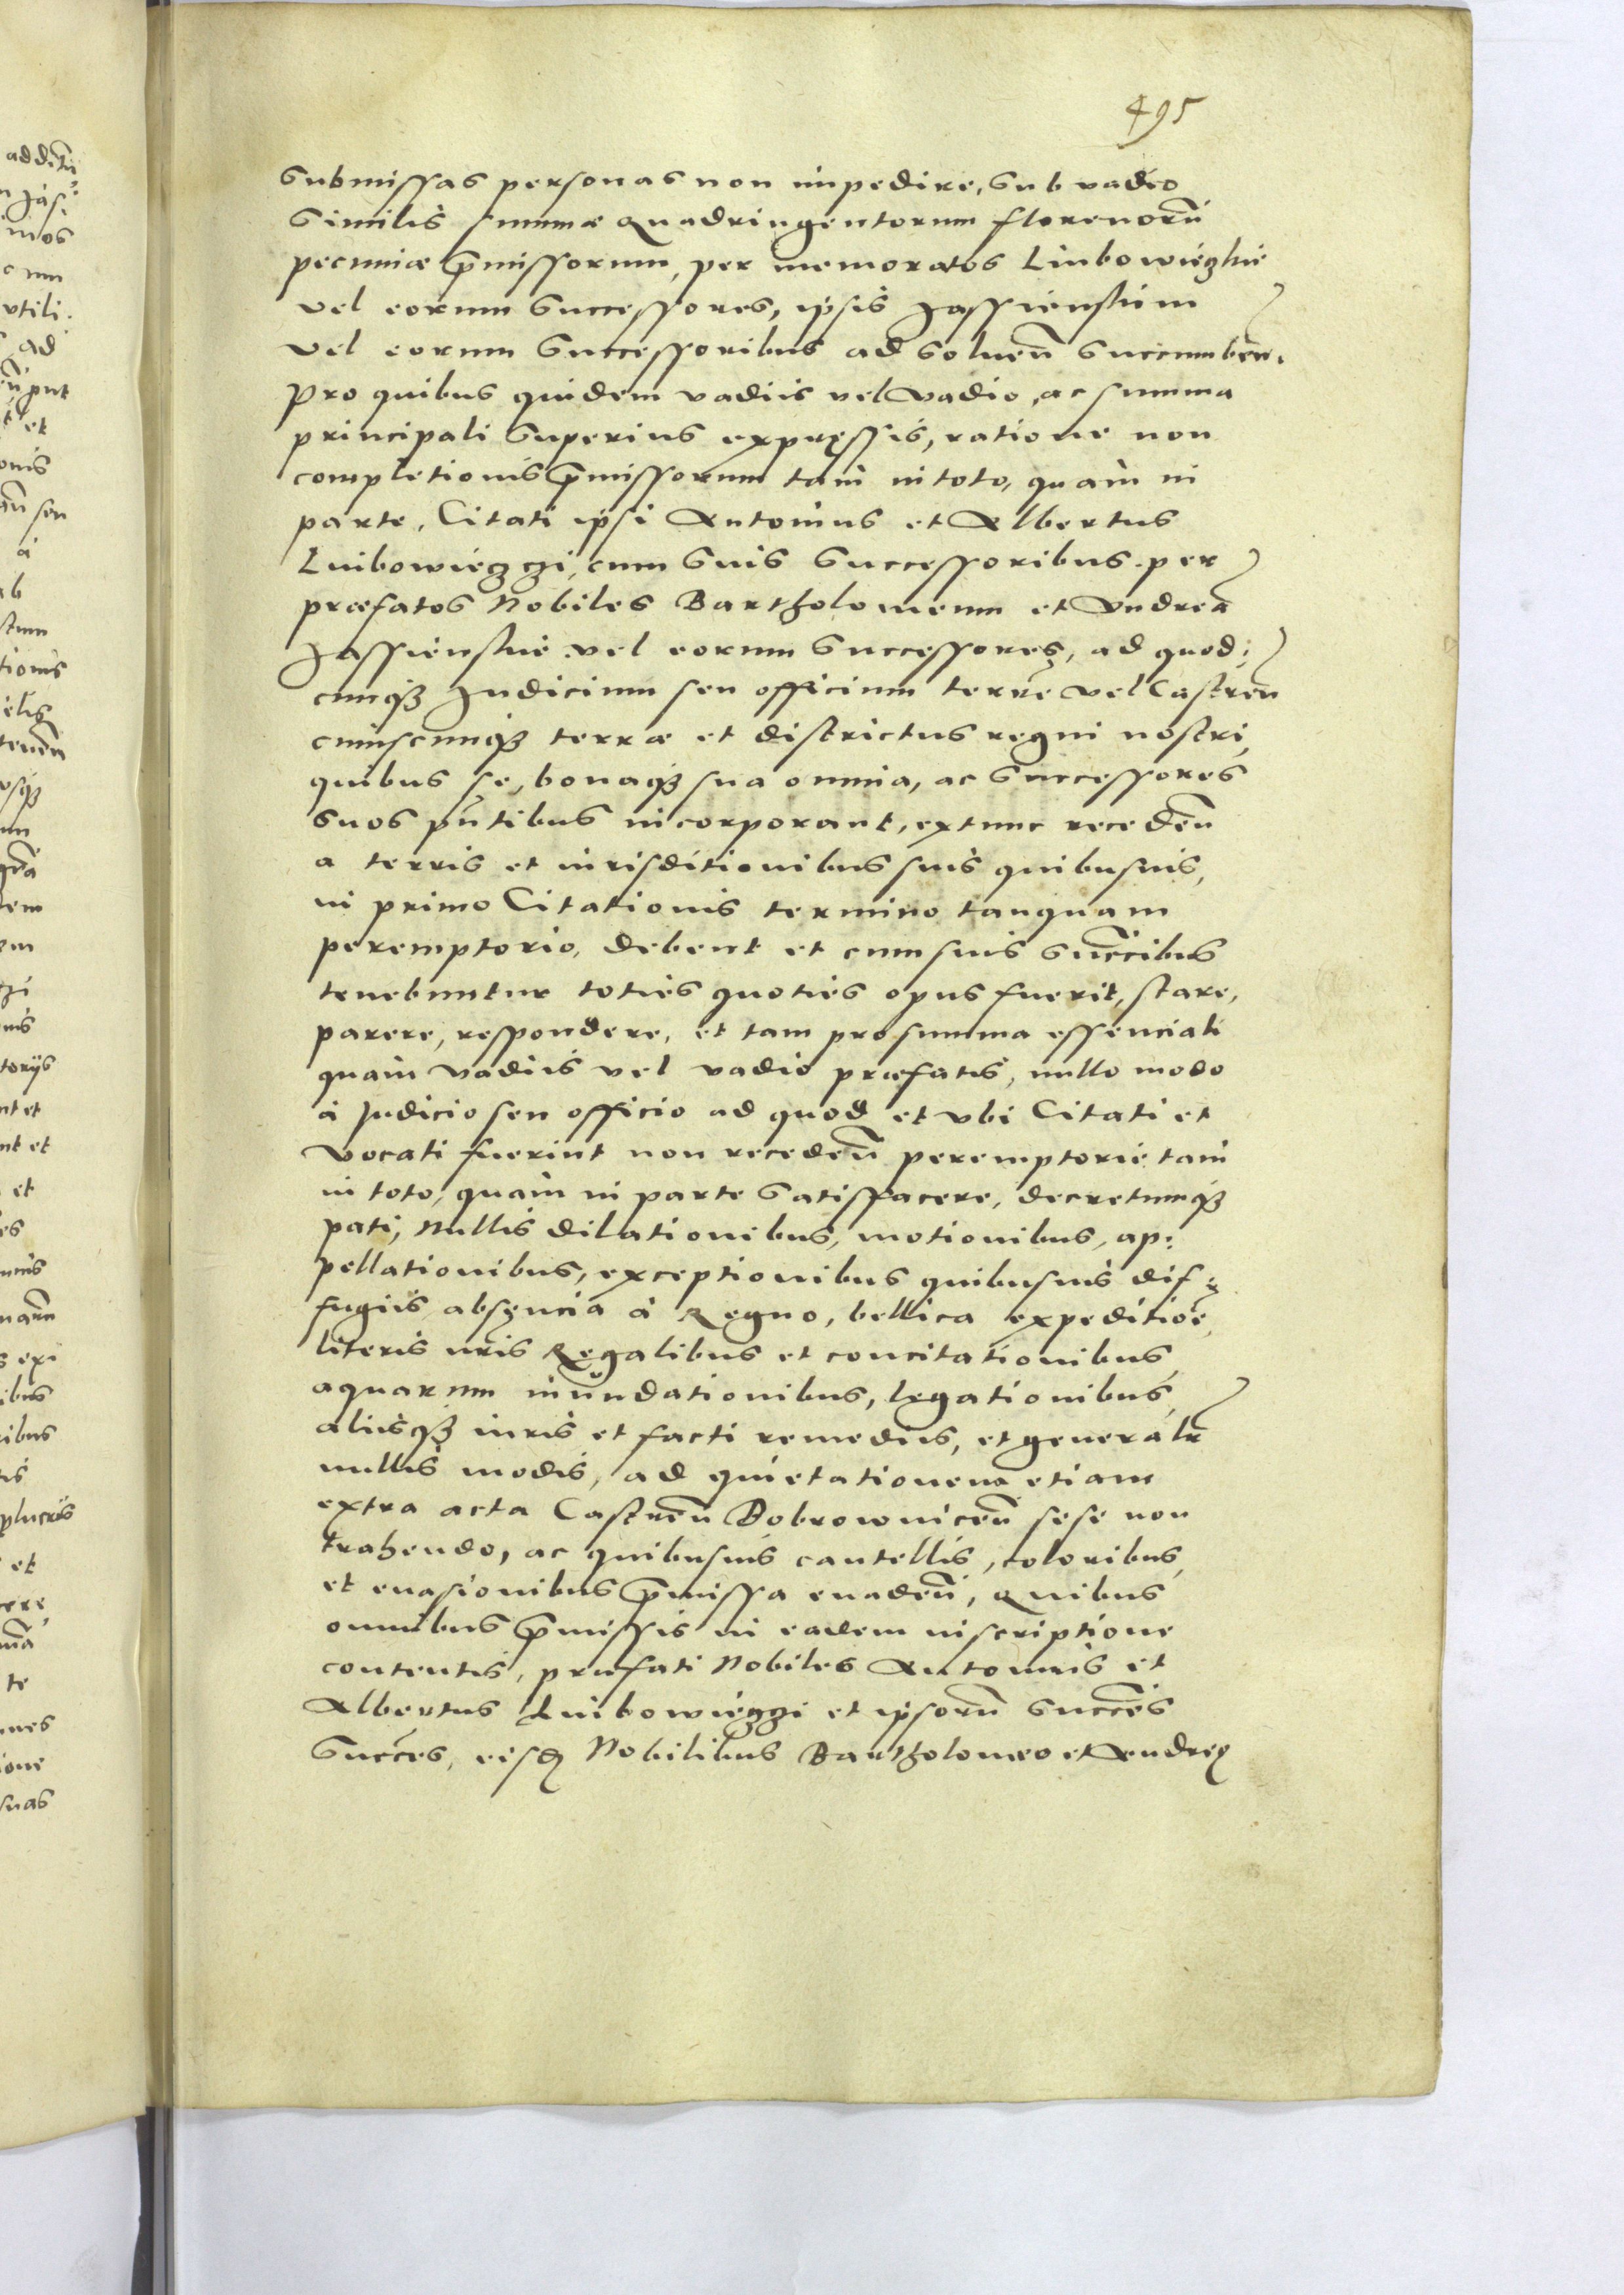 495
submissas personas non impedire, sub vadio
similis summæ Quadringentorum florenorū
pecuniæ p̄missorum, per memoratos Luibowiezkie
vel eorum successores, ipsis Jassienskim
vel eorum successoribus ad soluen̄ succumben̄.
Pro quibus quidem vadiis vel vadio, ac summa
principali superius expressis, ratione non
completionis p̄missorum tam in toto, quàm in
parte, Citati ipsi Antonius et Albertus
Luibowiezczi, cum suis successoribus per
præfatos Nobiles Bartholomeum et Andreā
Jassienskie vel eorum successores, ad quod:
cunqȝ Judicium seu officium terrē vel Castren̄
cuiuscunqȝ terræ et districtus regni nostri,
quibus se, bonaqȝ sua omnia, ac successores
suos pn̄tibus incorporant, extunc receden̄
a terris et iurisditionibus suis quibusuis,
in primo Citationis termino tanquam
peremptorio, debent et cum suis succ̄cibus
tenebuntur toties quoties opus fuerit, stare,
parere, respondere, et tam pro summa essenciali
quàm vadiis vel vadio præfatis, nullo modo
à Judicio seu officio ad quod et vbi Citati et
vocati fuerint non receden̄ peremptorie tam
in toto, quàm in parte satisfacere, decretumqȝ
pati, Nullis dilationibus, motionibus, ap:
pellationibus, exceptionibus quibusuis dif:
fugiis absencia à Regno, bellica expeditiōe,
literis nr̄is Regalibus et concitationibus,
aquarum inundationibus, legationibus,
aliisqȝ iuris et facti remediis, et generalr̄
nullis modis, ad quietationem etiam
extra acta Castren̄ Bobrownicen̄ sese non
trahendo, ac quibusuis cautellis, coloribus,
et euasionibus p̄missa euaden̄, Quibus
omnibus p̄missis in eadem inscriptione
contentis, præfati Nobiles Antonius et
Albertus Luibowiezzi et ipsorū succēs
succes, eisd̄ Nobilibus Bartholomeo et Andreę